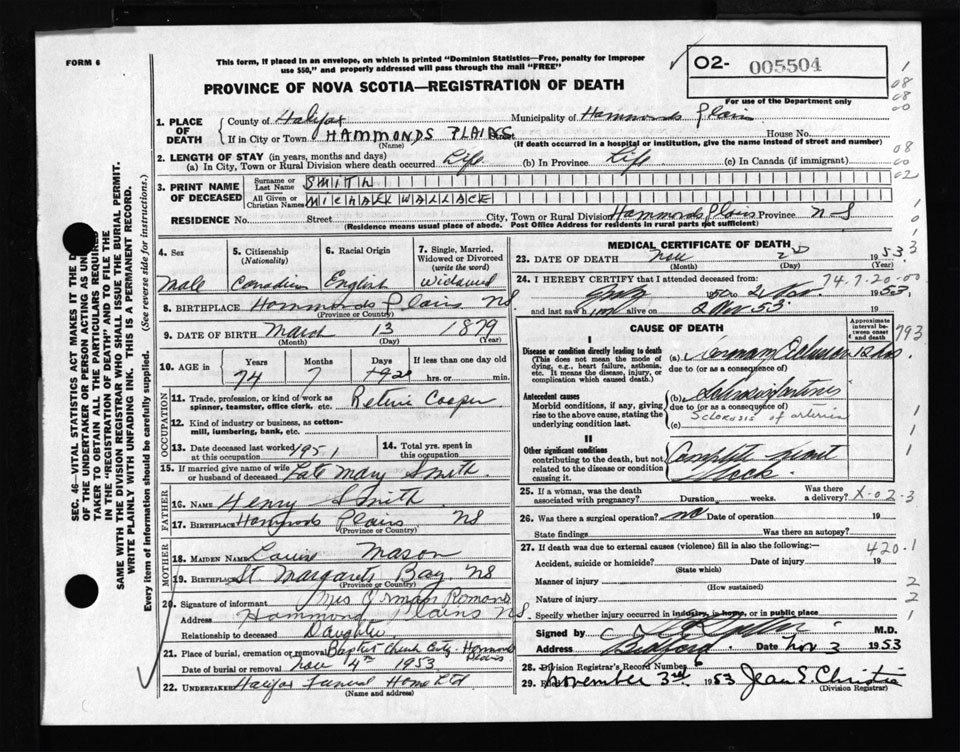 FORM 6
This form, if placed in an envelope, on which is printed "Dominion Statistics—Free, penalty for improper
use $50," and properly addressed will pass through the mail "FREE"
O2- 005504
For use of the Department only
PROVINCE OF NOVA SCOTIA—REGISTRATION OF DEATH
1. PLACE OF DEATH
County of Halifax Municipality of Hammonds Plains
If in City or Town HAMMONDS PLAINS Street House No.
(Name) (If death occurred in a hospital or institution, give the name instead of street and number)
2. LENGTH OF STAY (in years, months and days)
(a) In City, Town or Rural Division where death occurred Life (b) In Province Life (c) In Canada (if immigrant)
3. PRINT NAME OF DECEASED
Surname or Last Name SMITH
All Given or Christian Names MICHAEL WALLACE
RESIDENCE No. Street City, Town or Rural Division Hammonds Plains Province NS
(Residence means usual place of abode. Post Office Address for residents in rural parts not sufficient)
4. Sex 5. Citizenship (Nationality) 6. Racial Origin 7. Single, Married, Widowed or Divorced (write the word)
Male Canadian English Widowed
8. BIRTHPLACE Hammonds Plains NS
(Province or Country)
9. DATE OF BIRTH March 13 1879
(Month) (Day) (Year)
10. AGE in Years Months Days If less than one day old
74 7 hrs. or min.
OCCUPATION
11. Trade, profession, or kind of work as spinner, teamster, office clerk, etc. Cooper
12. Kind of industry or business, as cotton-mill, lumbering, bank, etc.
13. Date deceased last worked at this occupation 1951 14. Total yrs. spent in this occupation
15. If married give name of wife or husband of deceased Late Mary Smith
FATHER
16. NAME Henry Smith
17. BIRTHPLACE Hammonds Plains NS
(Province or Country)
MOTHER
18. MAIDEN NAME Louise Mason
19. BIRTHPLACE St. Margarets Bay NS
(Province or Country)
20. Signature of informant Mrs
Address Hammonds Plains NS
Relationship to deceased Daughter
21. Place of burial, cremation or removal Baptist Church Hammonds Plains
Date of burial or removal Nov 4th 1953
22. UNDERTAKER Halifax Funeral Home Ltd
(Name and address)
MEDICAL CERTIFICATE OF DEATH
23. DATE OF DEATH Nov 2 1953
(Month) (Day) (Year)
24. I HEREBY CERTIFY that I attended deceased from
74.7.20.00
2 Nov. 1953
and last saw him alive on 2 Nov 53 19
CAUSE OF DEATH
Approximate interval between onset and death
793
I
Disease or condition directly leading to death (a)
(This does not mean the mode of dying, e.g., heart failure, asthenia, etc. It means the disease, injury, or complication which caused death.)
due to (or as a consequence of)
Antecedent causes (b)
Morbid conditions, if any, giving rise to the above cause, stating the underlying condition last.
due to (or as a consequence of)
Sclerosis of arteries
(c)
II
Other significant conditions
contributing to the death, but not related to the disease or condition causing it.
Complete heart block
25. If a woman, was the death associated with pregnancy? Duration weeks. Was there a delivery? X-02-3
26. Was there a surgical operation? no Date of operation 19
State findings Was there an autopsy?
27. If death was due to external causes (violence) fill in also the following:—
420.1
Accident, suicide or homicide? Date of injury 19
(State which)
Manner of injury
(How sustained)
Nature of injury
Specify whether injury occurred in industry, in home, or in public place
Signed by M.D.
Address Bedford Date Nov 3 1953
28. Division Registrar's Record Number 6
29. November 3rd 1953 Jean S. Christie
(Division Registrar)
SEC. 46—VITAL STATISTICS ACT MAKES IT THE
OF THE UNDERTAKER OR PERSON ACTING AS
TAKER TO OBTAIN ALL THE PARTICULARS REQUIRED
IN THE "REGISTRATION OF DEATH" AND TO FILE THE
SAME WITH THE DIVISION REGISTRAR WHO SHALL ISSUE THE BURIAL PERMIT.
WRITE PLAINLY WITH UNFADING INK. THIS IS A PERMANENT RECORD.
Every item of information should be carefully supplied. (See reverse side for instructions.)